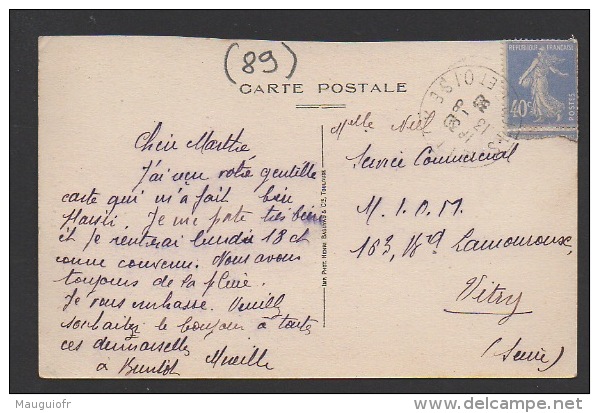 (89)
CARTE POSTALE
REPUBLIQUE FRANÇAISE
40c
POSTES
Chère Marthe
J'ai reçu votre gentille
carte qui m'a fait bien
plaisir. Je me porte très bien
et je rentrerai lundi 18 ct
comme convenu. Nous avons
toujours de la pluie.
Je vous embrasse. Veuillez
souhaiter le bonjour à toutes
ces demoiselles
à Bientôt Mireille
Melle Niel
Service Commercial
M.I.O.M.
163, Bd Lamouroux,
Vitry
(Seine)
Mauguiofr
www.delcampe.net